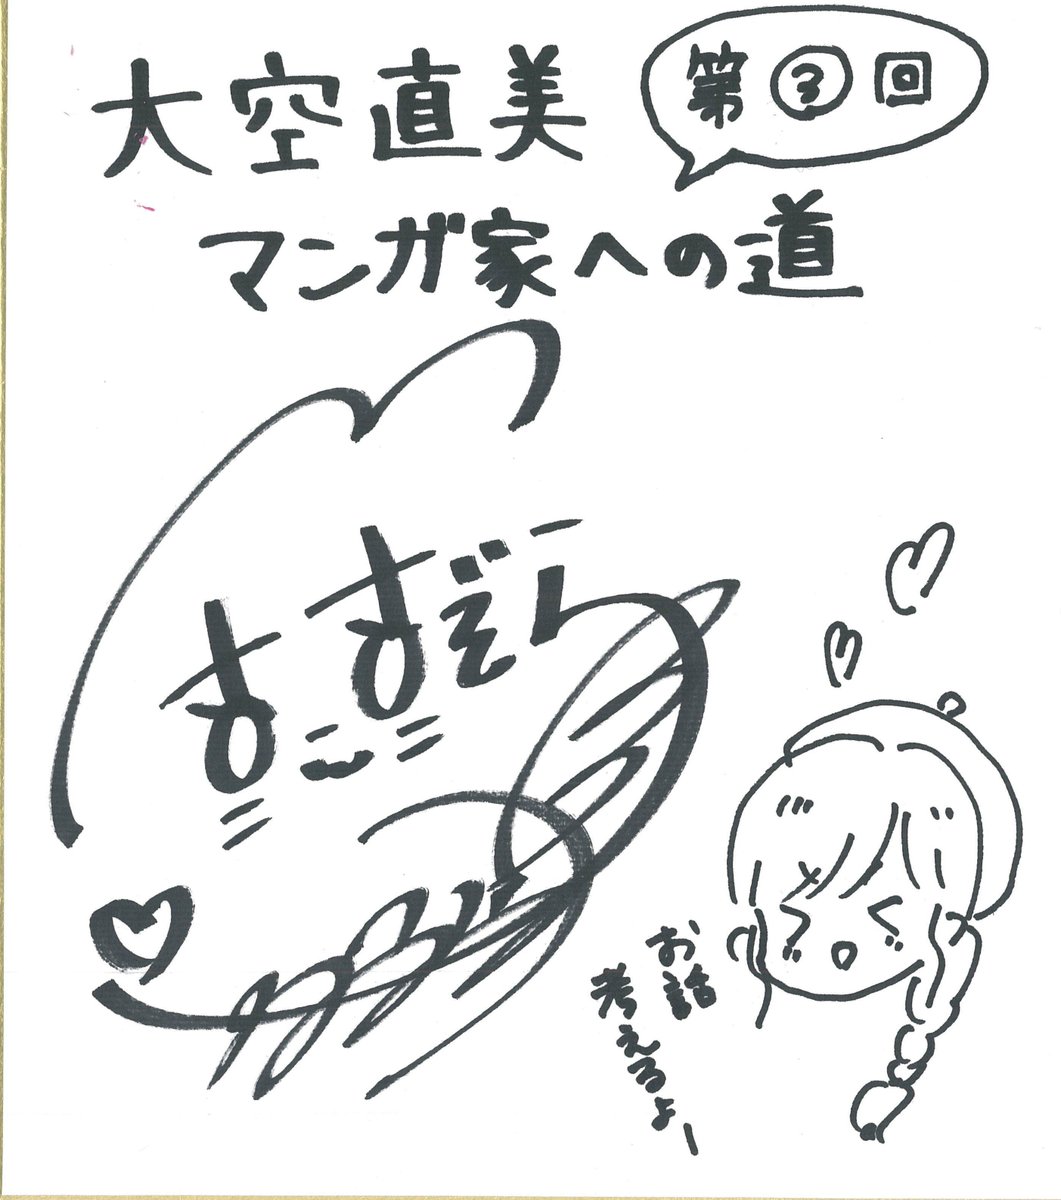 大空直美
第③回
マンガ家への道
お話
考えるよー